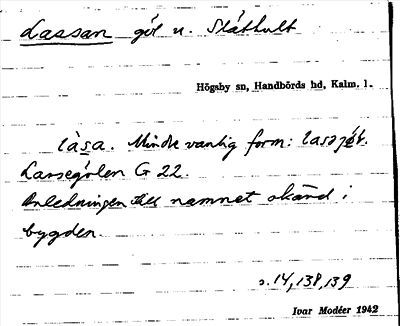 Lassan göl n. Slåthult
Högsby sn, Handbörds hd, Kalm. l.
làsa. Mindre vanlig form: lasəjø̀l.
Larsegölen G 22.
Anledningen till namnet okänd i
bygden.
s. 14, 138, 139
Ivar Modéer 1942